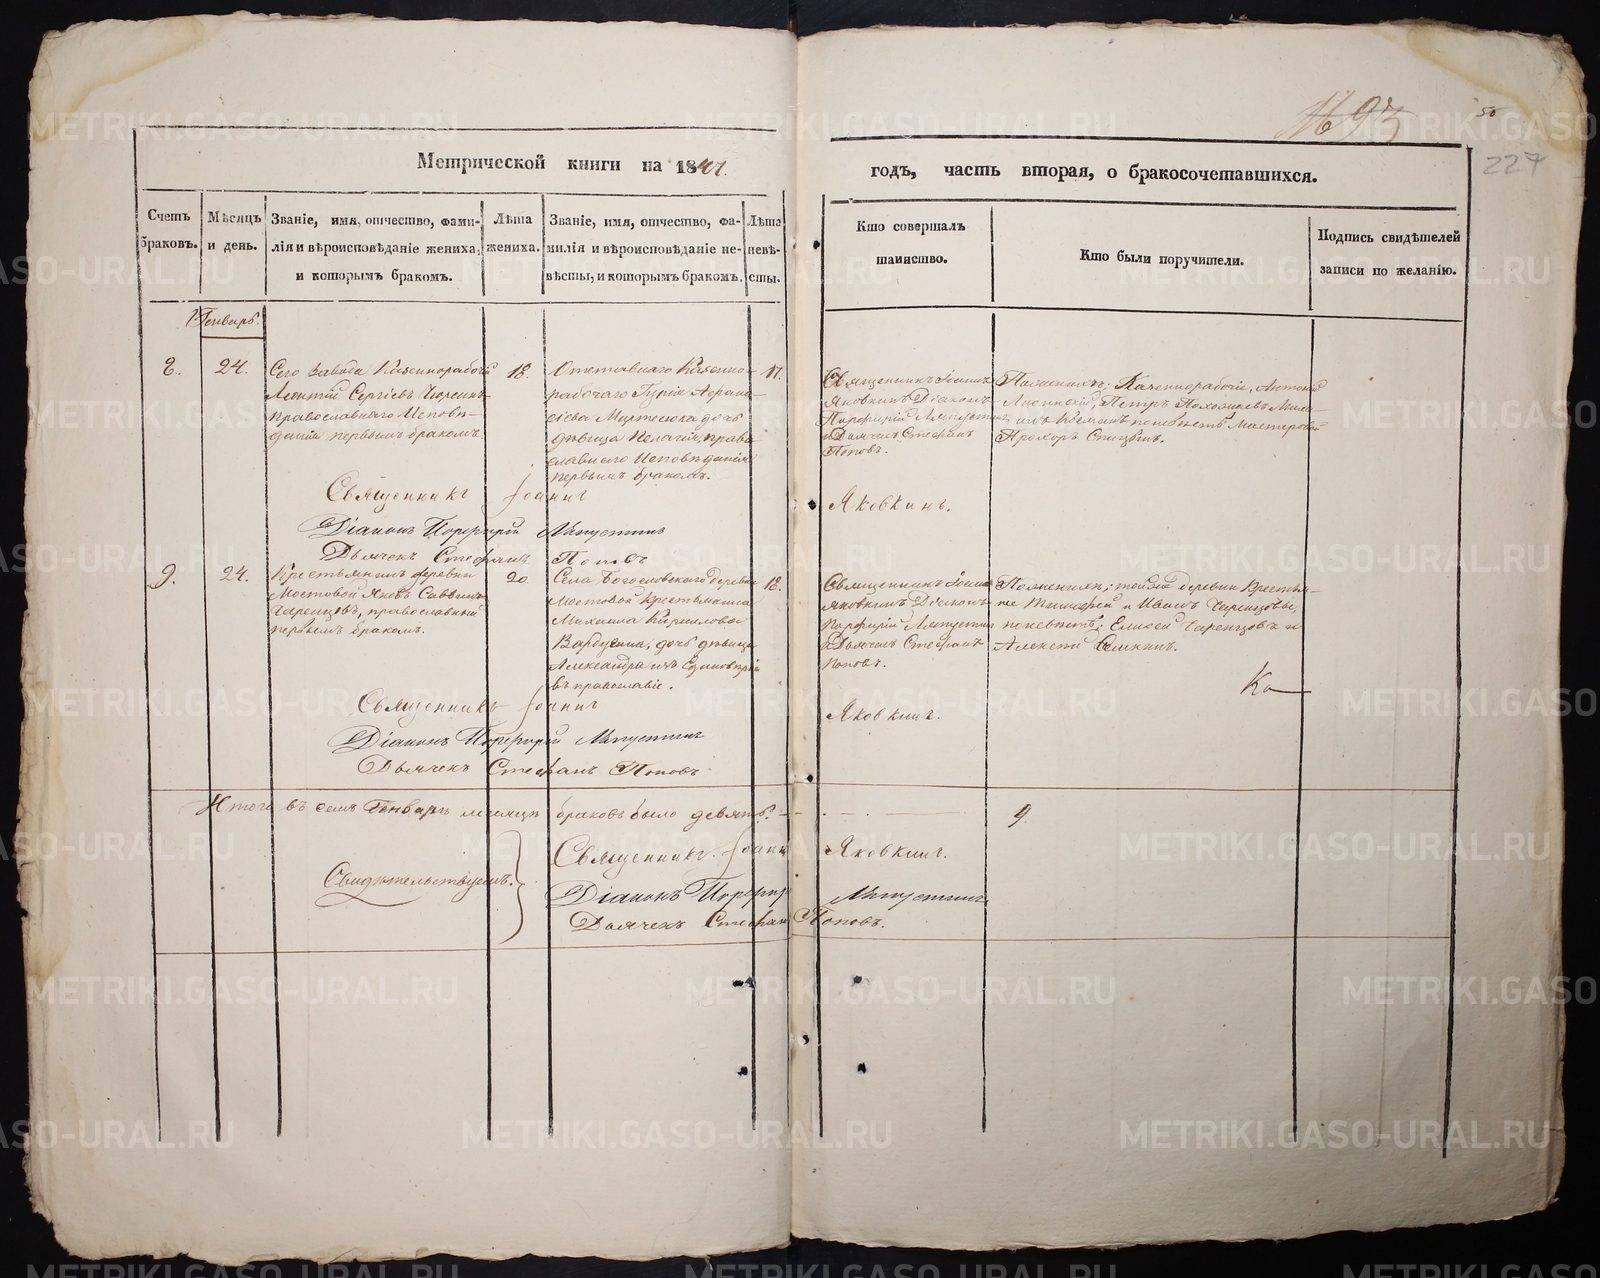 № 93
50
227
Метрической книги на 1847.
годъ, часть вторая, о бракосочетавшихся.
Счетъ браковъ.
Мѣсяцъ и день.
Званіе, имя, отчество, фами-
лія и вѣроисповѣданіе жениха,
и которымъ бракомъ.
Лѣта жениха.
Званіе, имя, отчество, фа-
милія и вѣроисповѣданіе не-
вѣсты, и которымъ бракомъ.
Лѣта невѣ-
сты.
Кто совершалъ
таинство.
Кто были поручители.
Подпись свидѣтелей
записи по желанію.
Генварь.
8.
24.
Сего завода Казеннорабочій
Леонтій Сергѣевъ
православнаго Исповѣ-
данія первымъ бракомъ
18.
Отставнаго Казенно-
рабочаго Гурія Афана-
сіева дочь
дѣвица Пелагія, право
славнаго Исповѣданія
первымъ бракомъ.
17.
Священникъ Іоаннъ
Яковкинъ Діаконъ
Порфирій Ляпустинъ
и Дьячекъ Стефанъ
Поповъ.
Казеннорабочіе, Антоній
Петръ
Мастеровой
Прохоръ
Священникъ Іоаннъ
Яковкинъ.
Діаконъ Порфирій Ляпустинъ
Дьячекъ Стефанъ Поповъ
9.
24.
Крестьянинъ деревни
Мостовой Яковъ Саввинъ
Чаренцовъ, православный
первымъ бракомъ.
20.
Села Богословскаго деревни
Мостовой Крестьянина
Михаила Кириллова
дочь дѣвица
Александра изъ Единовѣрія
въ православіе.
18.
Священникъ Іоаннъ
Яковкинъ Діаконъ
Порфирій Ляпустинъ
и Дьячекъ Стефанъ
Поповъ.
По женихѣ; тойже деревни Крестья-
не Тимофей и Иванъ Чаренцовы,
по невѣстѣ; Елисей Чаренцовъ и
Алексѣй Семкинъ.
Ко
Священникъ Іоаннъ
Яковкинъ.
Діаконъ Порфирій Ляпустинъ
Дьячекъ Стефанъ Поповъ
Итого въ семъ Генварѣ мѣсяцѣ браковъ было девять. 9.
Свидѣтельствуемъ.
Священникъ Іоаннъ Яковкинъ.
Діаконъ Порфирій Ляпустинъ
Дьячекъ Стефанъ Поповъ.
METRIKI.GASO-URAL.RU